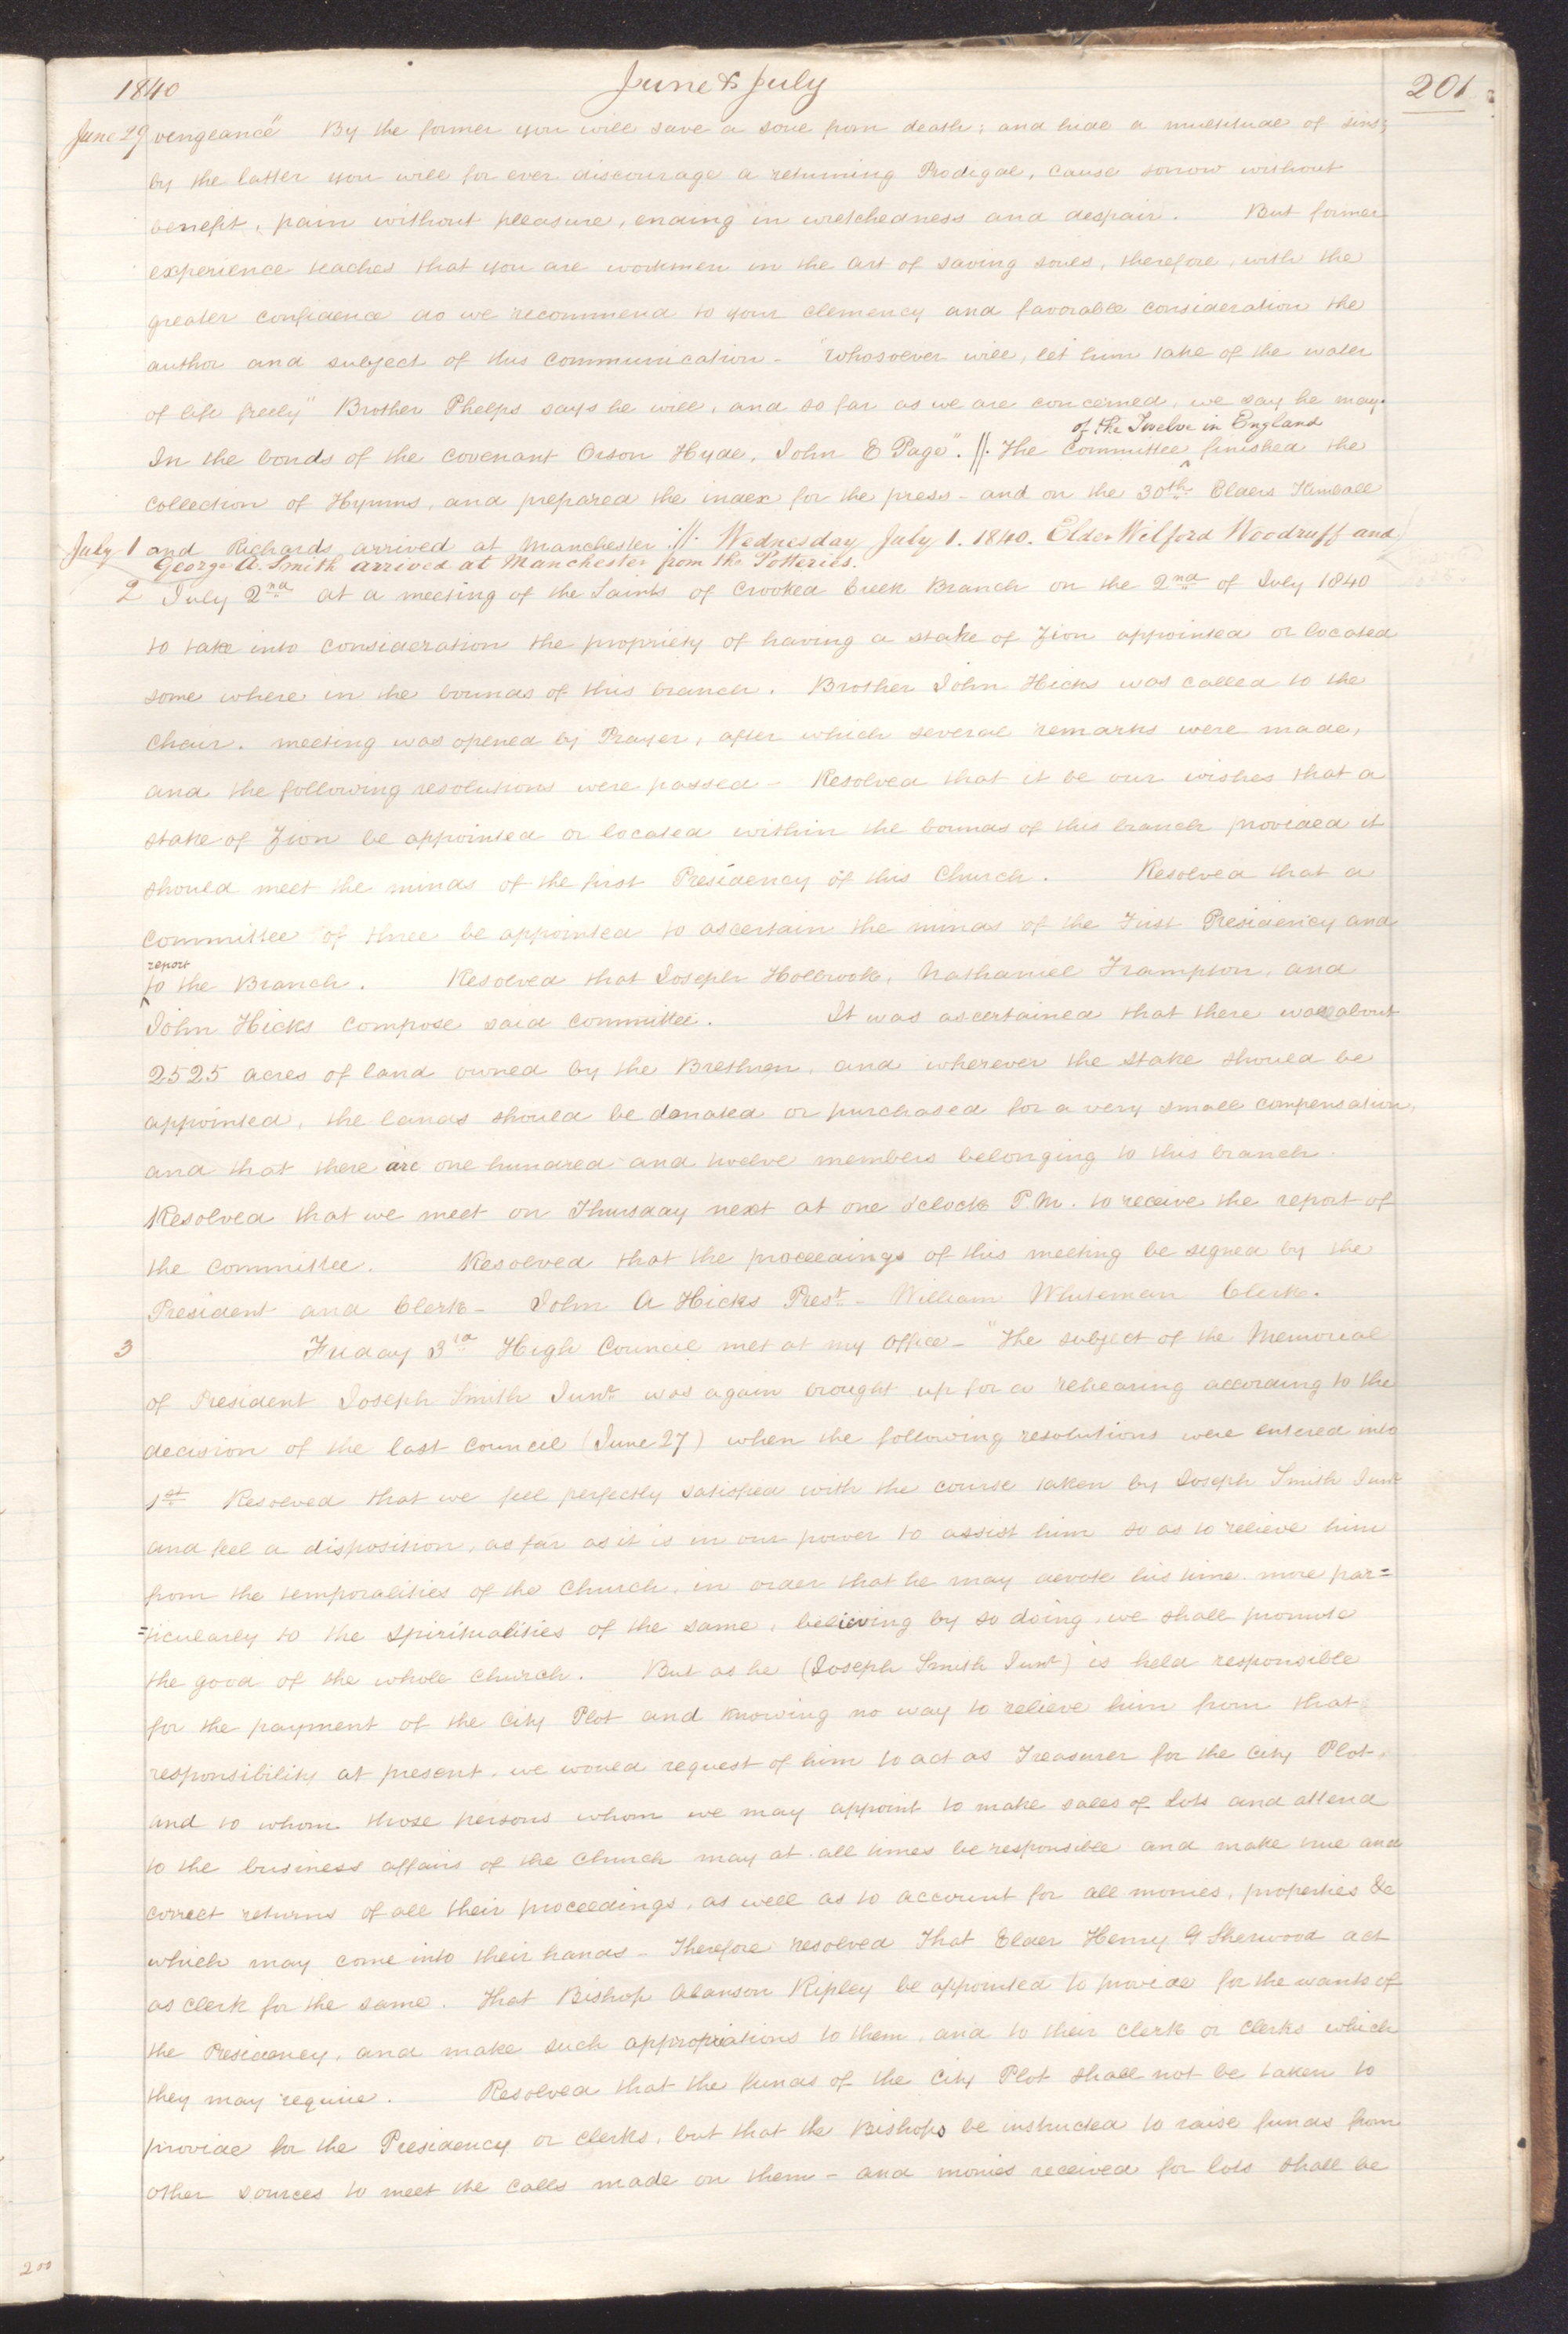 1840
June & July
201
June 29 vengeance" By the former you will save a soul from death; and hide a multitude of sins;
by the latter you will for ever discourage a returning Prodigal, cause sorrow without
benefit, pain without pleasure, ending in wretchedness and despair. But former
experience teaches that you are workmen in the art of saving souls, therefore, with the
greater confidence do we recommend to your clemency and favorable consideration the
author and subject of this communication – "Whosoever will, let him take of the water
of life freely" Brother Phelps says he will, and so far as we are concerned, we say he may.
of the Twelve in England
In the bonds of the covenant Orson Hyde, John E Page". //. The Committee ^ finished the
collection of Hymns, and prepared the index for the press – and on the 30th Elders Kimball
July 1 and Richards arrived at Manchester ://. Wednesday July 1. 1840. Elder Wilford Woodruff and
George A. Smith arrived at Manchester from the Potteries.
2 July 2nd at a meeting of the Saints of Crooked Creek Branch on the 2nd of July 1840
to take into consideration the propriety of having a stake of Zion appointed or located
some where in the bounds of this branch. Brother John Hicks was called to the
chair. meeting was opened by Prayer, after which several remarks were made,
and the following resolutions were passed – Resolved that it be our wishes that a
stake of Zion be appointed or located within the bounds of this branch provided it
should meet the minds of the first Presidency of this Church. Resolved that a
committee of three be appointed to ascertain the minds of the First Presidency and
report
^ to the Branch. Resolved that Joseph Holbrook, Nathaniel Frampton, and
John Hicks compose said committee. It was ascertained that there was about
2525 acres of land owned by the Brethren, and wherever the stake should be
appointed, the lands should be donated or purchased for a very small compensation,
and that there are one hundred and twelve members belonging to this branch.
Resolved that we meet on Thursday next at one o'clock P.M. to receive the report of
the committee. Resolved that the proceedings of this meeting be signed by the
President and Clerk – John A Hicks Prest – William Whiteman Clerk.
3 Friday 3rd High Council met at my office – "The subject of the Memorial
of President Joseph Smith Junr was again brought up for a rehearing according to the
decision of the last council (June 27) when the following resolutions were entered into
1st Resolved that we feel perfectly satisfied with the course taken by Joseph Smith Junr
and feel a disposition, as far as it is in our power to assist him so as to relieve him
from the temporalities of the Church, in order that he may devote his time more par=
=ticularly to the spiritualities of the same, believing by so doing, we shall promote
the good of the whole church. But as he (Joseph Smith Junr) is held responsible
for the payment of the City Plot and knowing no way to relieve him from that
responsibility at present, we would request of him to act as Treasurer for the City Plot,
and to whom those persons whom we may appoint to make sales of Lots and attend
to the business affairs of the Church may at all times be responsible and make true and
correct returns of all their proceedings, as well as to account for all monies, properties &c
which may come into their hands – Therefore resolved That Elder Henry G Sherwood act
as clerk for the same. That Bishop Alanson Ripley be appointed to provide for the wants of
the Presidency, and make such appropriations to them, and to their clerk or clerks which
they may require. Resolved that the funds of the City Plot shall not be taken to
provide for the Presidency or clerks, but that the Bishops be instructed to raise funds from
other sources to meet the calls made on them – and monies received for lots shall be
200